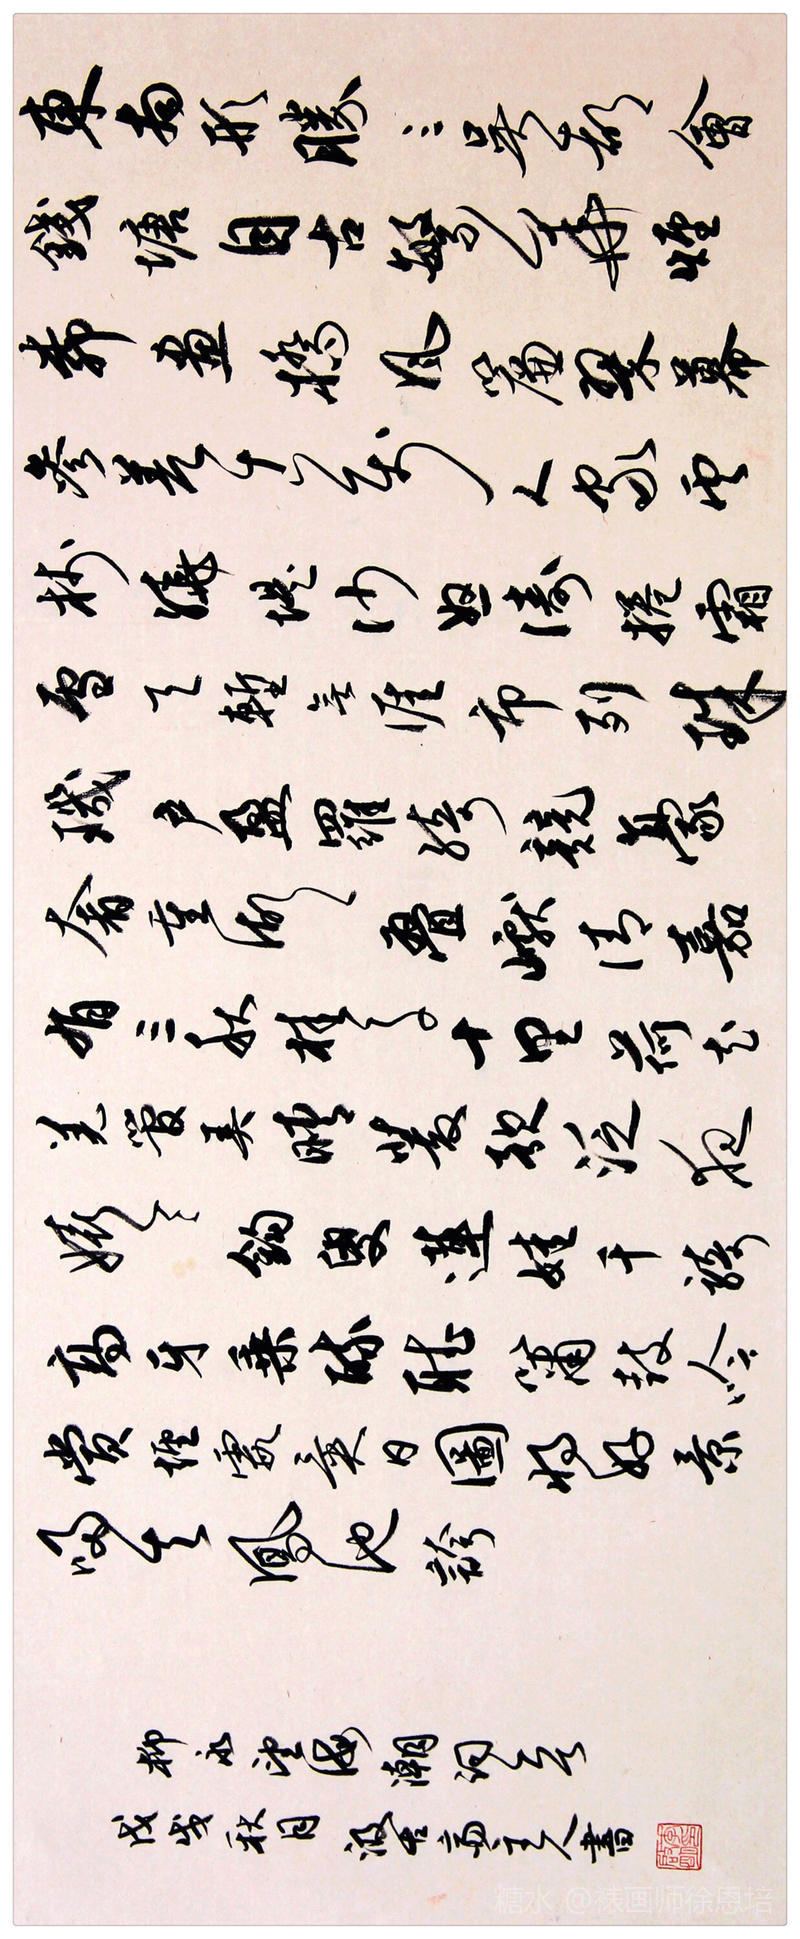 東南形勝三吳都會
錢塘自古繁華煙
柳畫橋風簾翠幕
參差十萬人家雲
樹繞堤沙怒濤捲霜
雪天塹無涯市列珠
璣戶盈羅綺競豪
奢重湖疊巘清嘉
有三秋桂子十里荷花
羌管弄晴菱歌泛夜
嬉嬉釣叟蓮娃千騎
高牙乘醉聽簫鼓吟
賞煙霞異日圖將好景
歸去鳳池誇
柳永望海潮詞
戊戌秋月主人書
糖水 @裱画师徐恩培